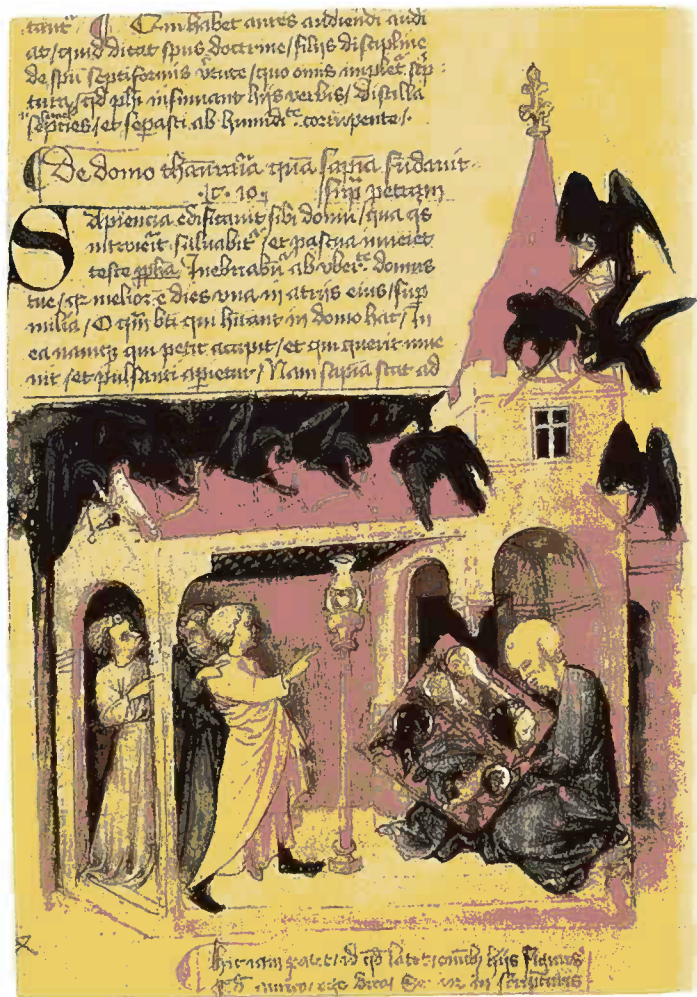 Qui habet aures audiendi audi
at / quid dicat spūs doctrine / filijs discipline
de spū septiformis / quo omnis implet̄ scp
tura / qd phi insinuant hijs verbis / distilla
septies / et sepasti ab humidte corrūpente /.
De domo quā sapīa fundavit
.C. 10. sup petram
Sapiencia edificavit sibi domū / quā qs
introierit salvabit / et pascua inveiet
teste ppha Inebriabūt ab vbertte domus
tue / qr melior ē dies vna in atrijs eius / sup
milia / O qm bti qui hitant in domo hac / In
ea namqz qui petit accipit / et qui querit inve
nit / et pulsanti apietur / Nam sapīa stat ad
hic iam patet / id qd latet / hijs figuris
in scripturis